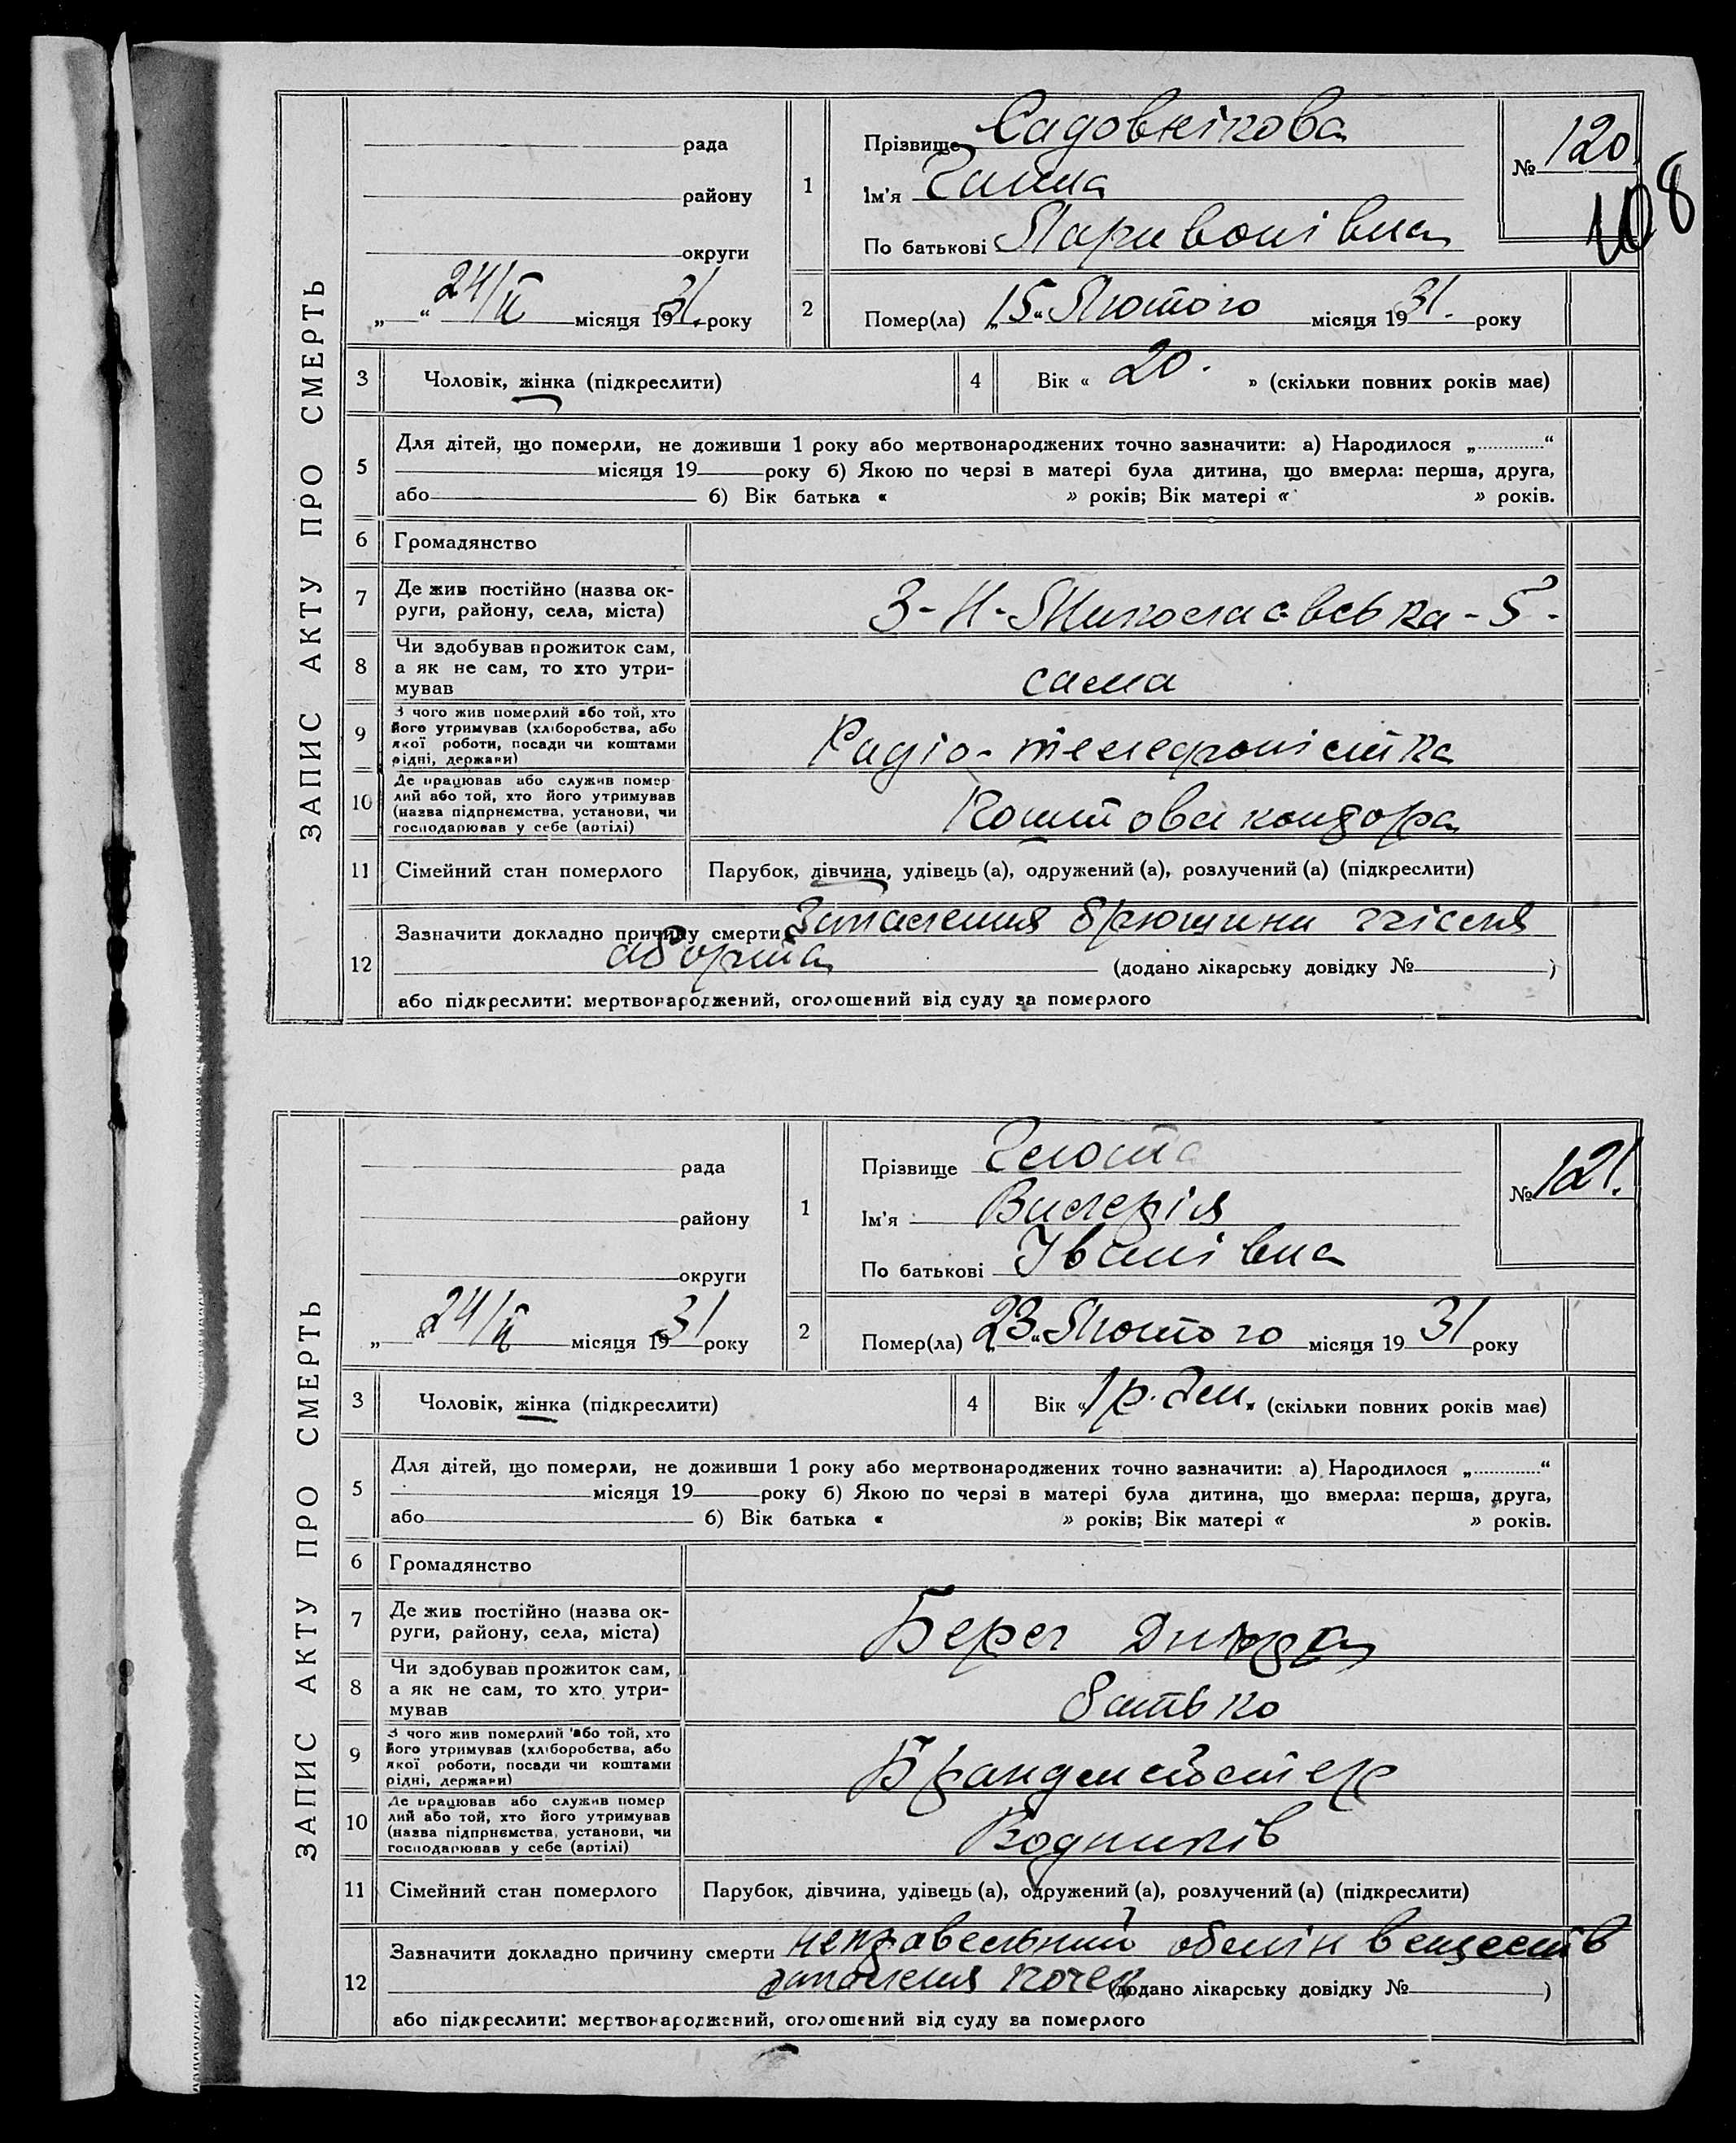 ЗАПИС АКТУ ПРО СМЕРТЬ
рада
району
округи
„ “ 24/II місяця 1931. року
1
Прізвище Садовнікова
Ім'я Ганна
По батькові Ларивонівна
№ 120.
108
2
Помер(ла) „15“ Лютого місяця 1931. року
3
Чоловік, жінка (підкреслити)
4
Вік « 20. » (скільки повних років має)
5
Для дітей, що померли, не доживши 1 року або мертвонароджених точно зазначити: а) Народилося „ “
місяця 19 року б) Якою по черзі в матері була дитина, що вмерла: перша, друга,
або б) Вік батька « » років; Вік матері « » років.
6
Громадянство
7
Де жив постійно (назва ок-
руги, району, села, міста)
3-Н-Миколаєвська-5-
8
Чи здобував прожиток сам,
а як не сам, то хто утри-
мував
сама
9
З чого жив померлий або той, хто
його утримував (хліборобства, або
якої роботи, посади чи коштами
рідні, держави)
Радіо-телефоністка
10
Де працював або служив помер-
лий або той, хто його утримував
(назва підприємства, установи, чи
господарював у себе (артілі)
Поштова контора
11
Сімейний стан померлого
Парубок, дівчина, удівець (а), одружений (а), розлучений (а) (підкреслити)
12
Зазначити докладно причину смерти Запалення брюшини після
аборта (додано лікарську довідку № )
або підкреслити: мертвонароджений, оголошений від суду за померлого
ЗАПИС АКТУ ПРО СМЕРТЬ
рада
району
округи
„ “ 24/II місяця 1931 року
1
Прізвище
Ім'я Валерія
По батькові Іванівна
№ 121.
2
Помер(ла) „23“ Лютого місяця 1931 року
3
Чоловік, жінка (підкреслити)
4
Вік « 1 р. 2 м. » (скільки повних років має)
5
Для дітей, що померли, не доживши 1 року або мертвонароджених точно зазначити: а) Народилося „ “
місяця 19 року б) Якою по черзі в матері була дитина, що вмерла: перша, друга,
або б) Вік батька « » років; Вік матері « » років.
6
Громадянство
7
Де жив постійно (назва ок-
руги, району, села, міста)
Берег Дніпра
8
Чи здобував прожиток сам,
а як не сам, то хто утри-
мував
батько
9
З чого жив померлий або той, хто
його утримував (хліборобства, або
якої роботи, посади чи коштами
рідні, держави)
Брандмейстер
10
Де працював або служив помер
лий або той, хто його утримував
(назва підприємства, установи, чи
господарював у себе (артілі)
Водників
11
Сімейний стан померлого
Парубок, дівчина, удівець (а), одружений (а), розлучений (а) (підкреслити)
12
Зазначити докладно причину смерти неправельний обмін веществ
запалення почек (додано лікарську довідку № )
або підкреслити: мертвонароджений, оголошений від суду за померлого